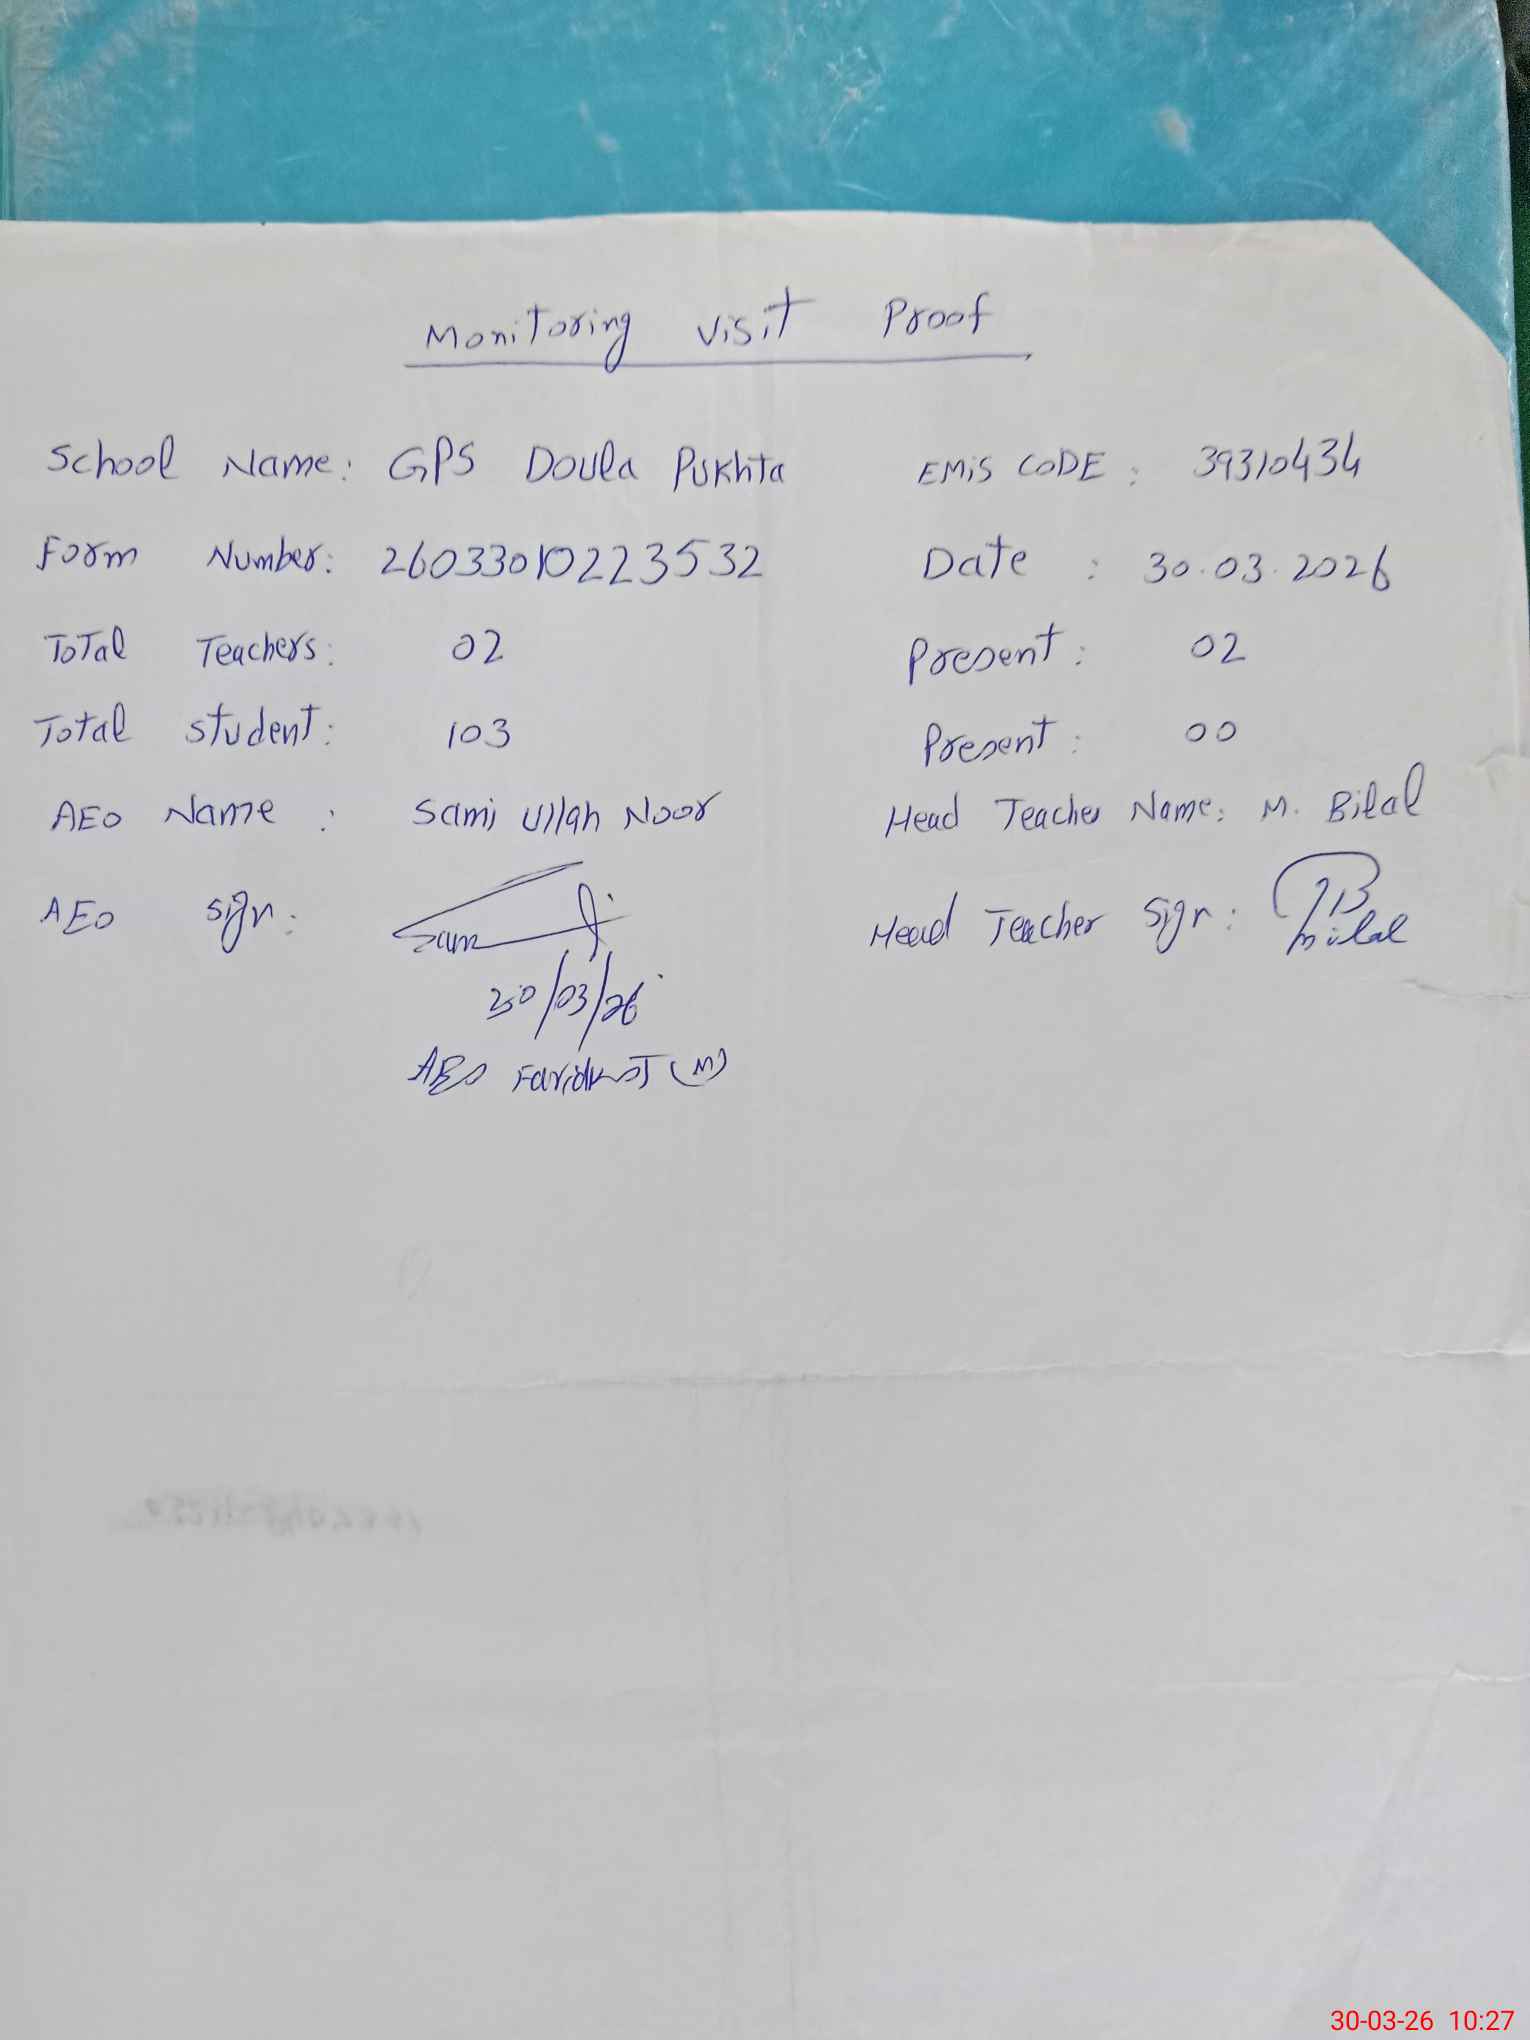 Monitoring Visit Proof
School Name: GPS Doula Pukhta EMIS CODE: 39310434
Form Number: 26033010223532 Date: 30.03.2026
Total Teachers: 02 Present: 02
Total Student: 103 Present: 00
AEO Name: Sami Ullah Noor Head Teacher Name: M. Bilal
AEO Sign: Sami Head Teacher Sign: Bilal
30/03/26
AEO Faridkot (M)
30-03-26 10:27